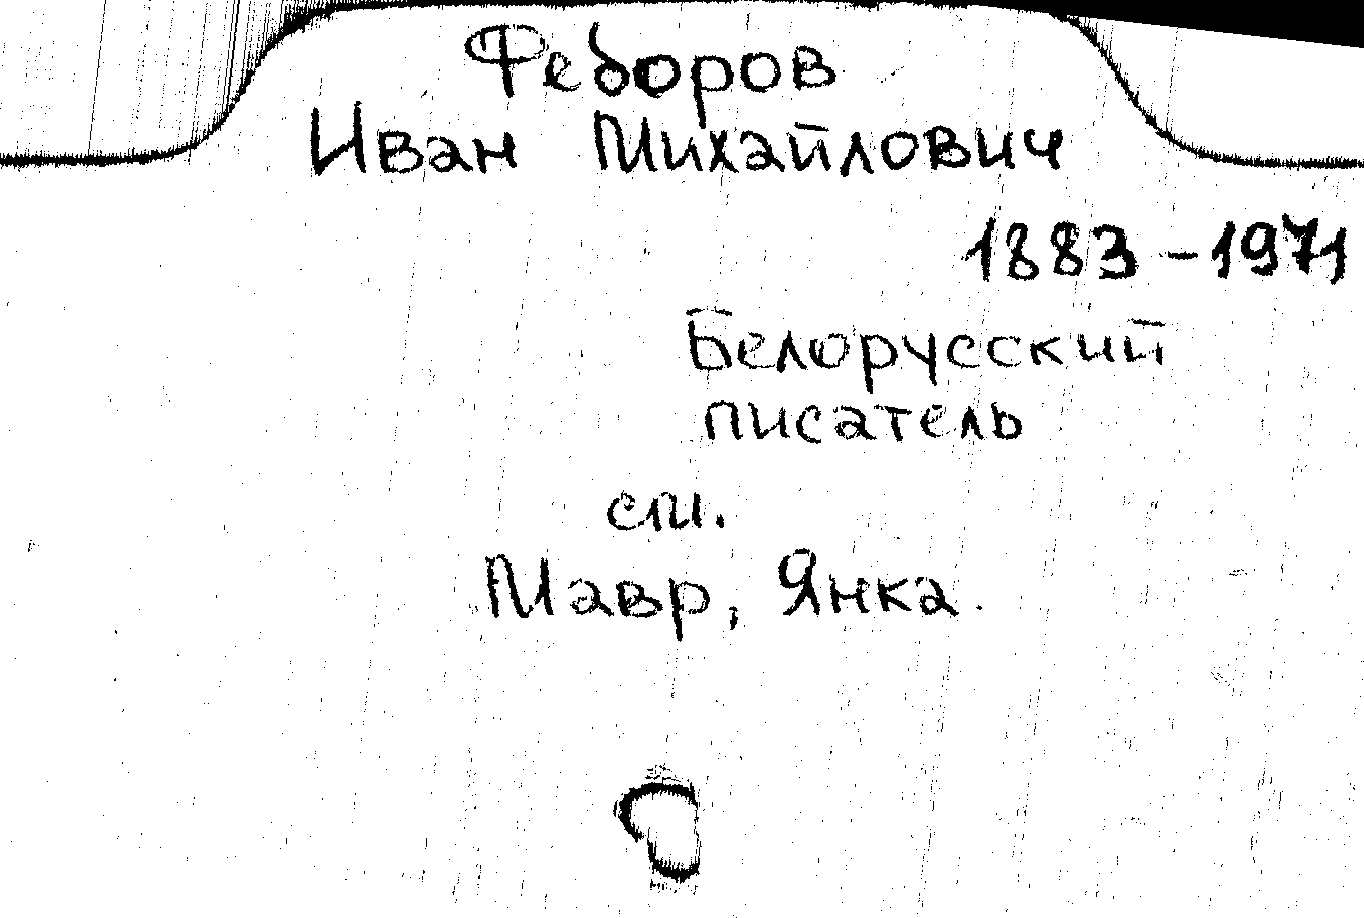 Федоров
Иван Михайлович
1883-1971
Белорусский
писатель
см.
Мавр, Янка.